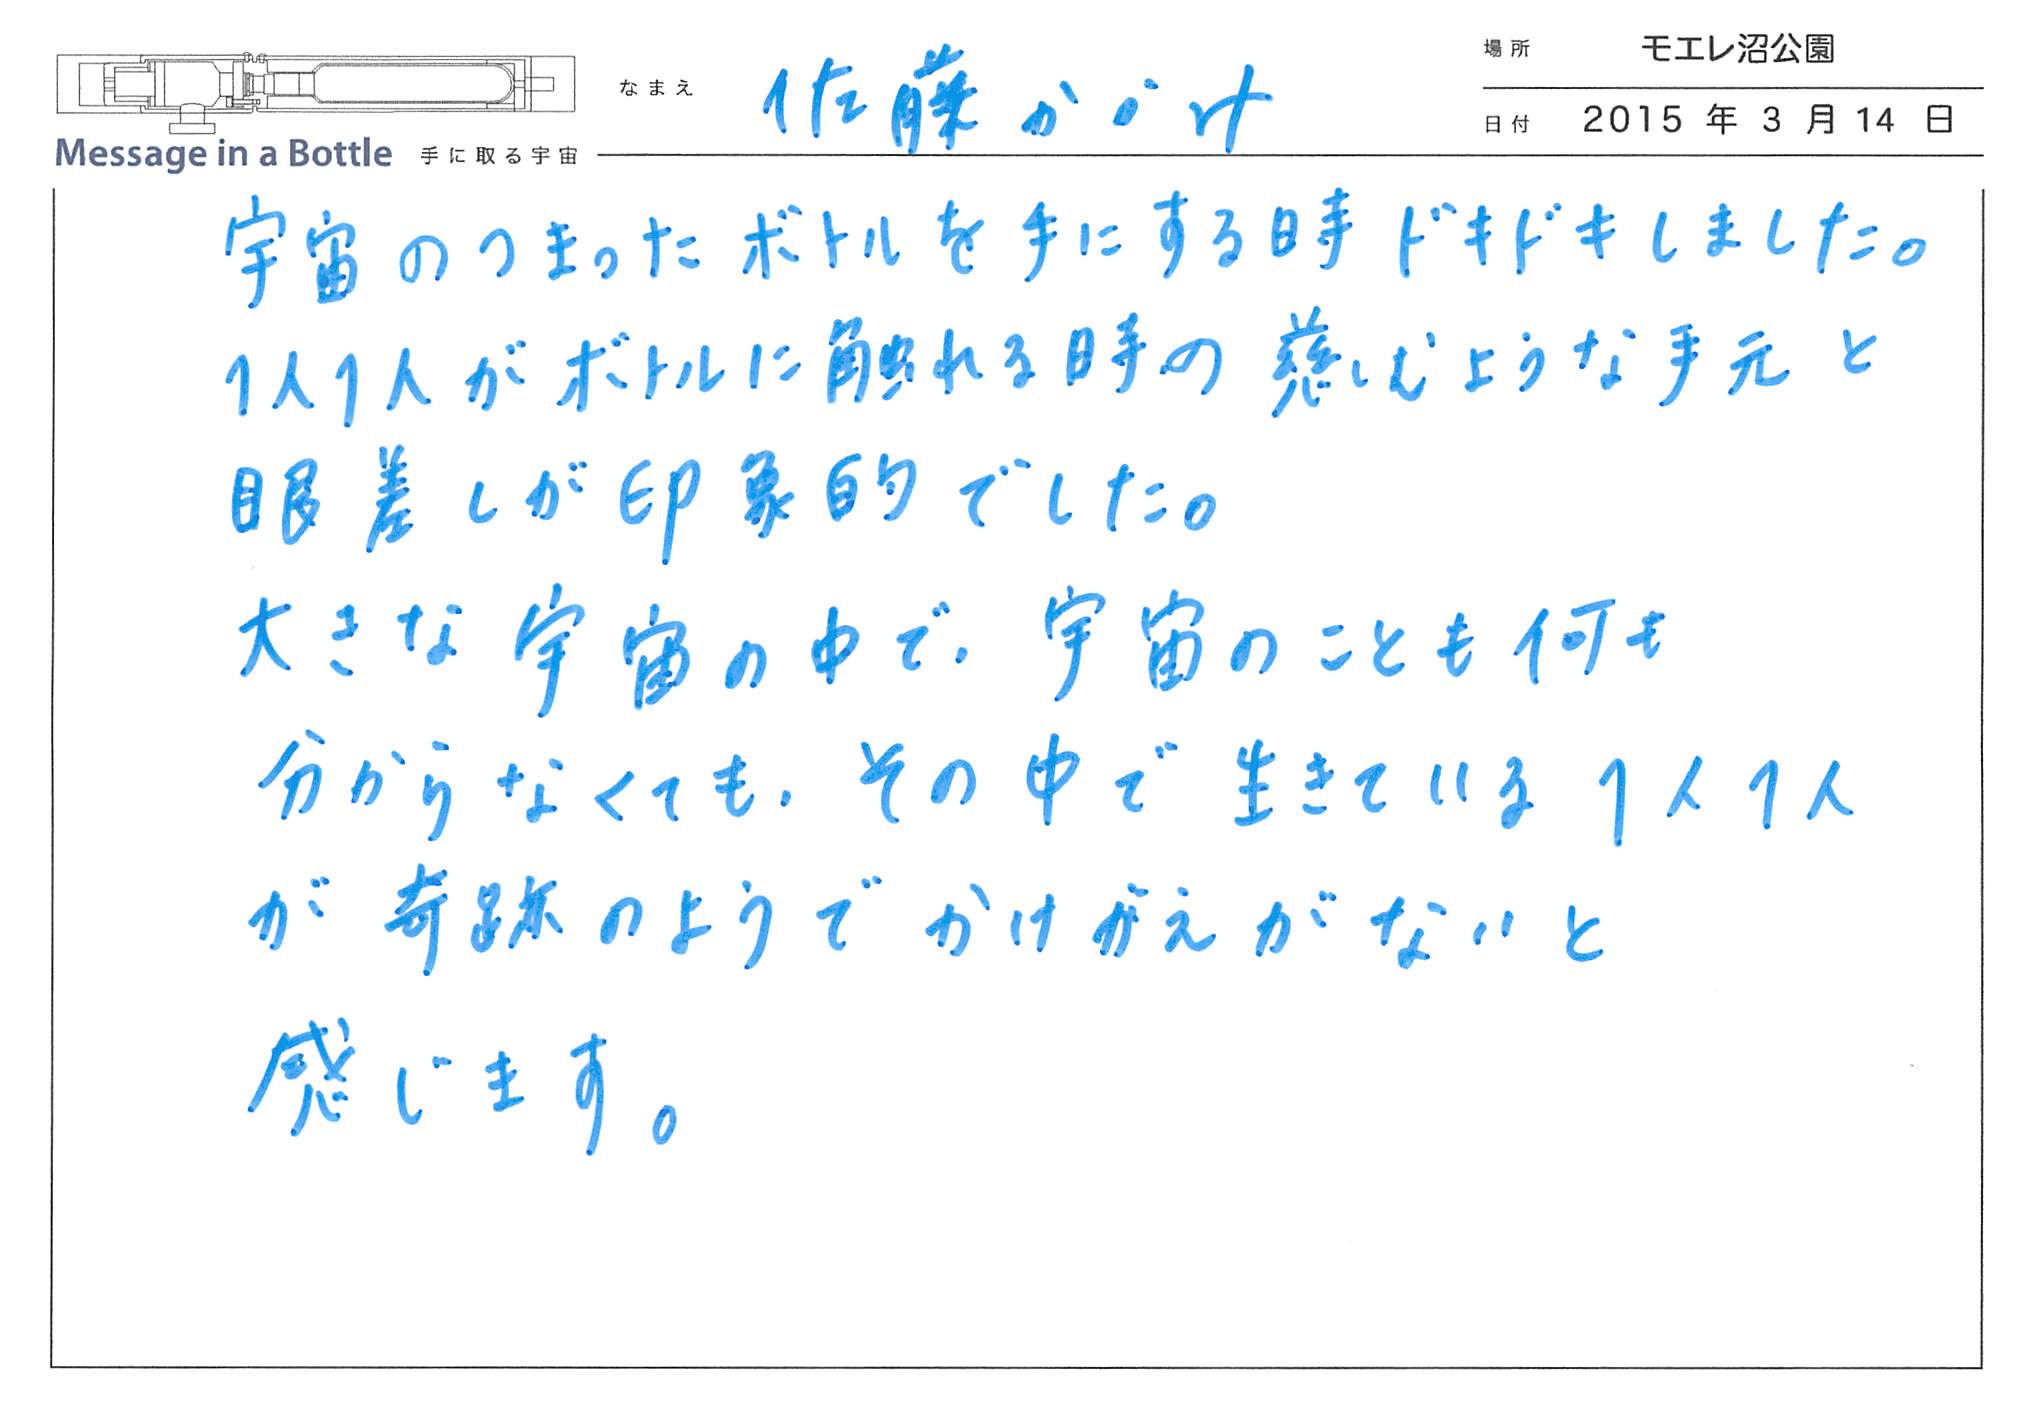 場所 モエレ沼公園
なまえ 佐藤
日付 2015 年 3 月 14 日
Message in a Bottle 手に取る宇宙
宇宙のつまったボトルを手にする時ドキドキしました。
1人1人がボトルに触れる時の慈しむような手元と
眼差しが印象的でした。
大きな宇宙の中で、宇宙のことも何も
分からなくても、その中で生きている1人1人
が奇跡のようでかけがえがないと
感じます。